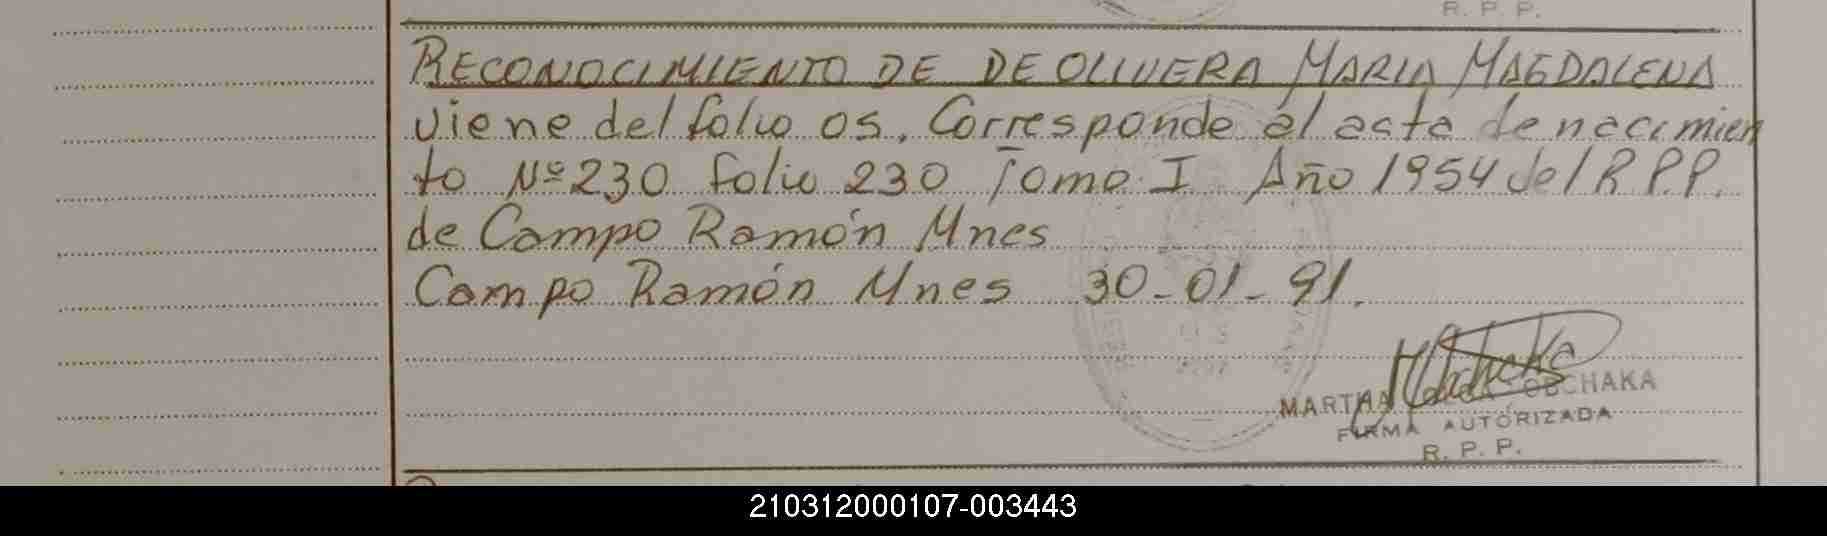 R. P. P.
RECONOCIMIENTO DE DE OLIVERA MARIA MAGDALENA
viene del folio 05. Corresponde al acta de nacimien
to Nº 230 folio 230 Tomo I Año 1954 del R P.P.
de Campo Ramón Mnes
Campo Ramón Mnes 30-01-91.
MARTHA OBCHAKA
FIRMA AUTORIZADA
R. P. P.
210312000107-003443